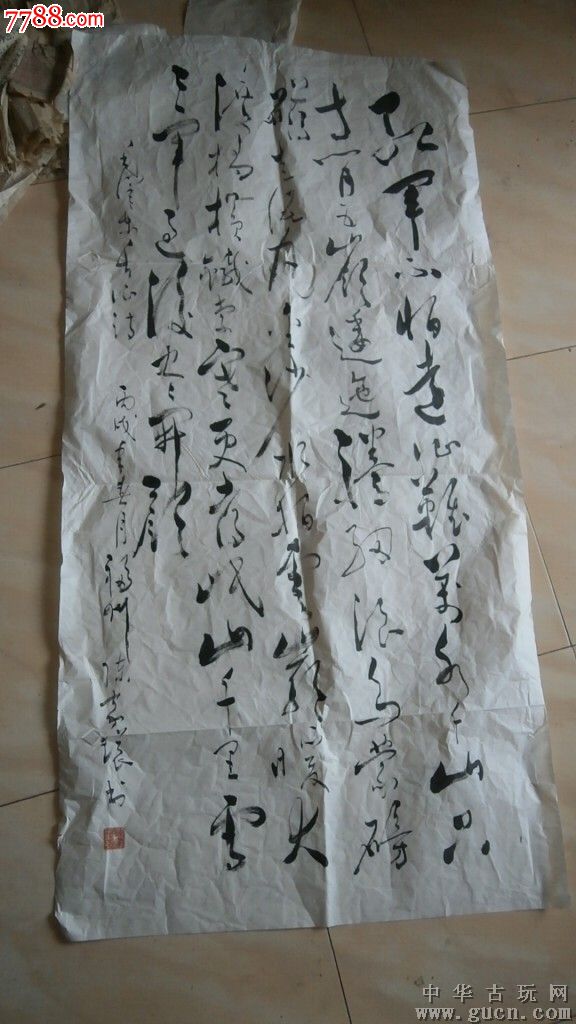 7788.com
红军不怕远征難萬水千山只
等闲五嶺逶迤騰细浪烏蒙磅
礴走泥丸金沙水拍雲崖暖大
渡橋横鐵索寒更喜岷山千里雪
三軍过后尽開颜
毛澤东长征詩 丙戌年春月福州陈振書
中华古玩网
www.gucn.com